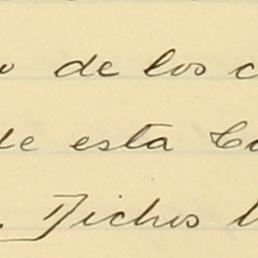 de los
de esta
Dichos